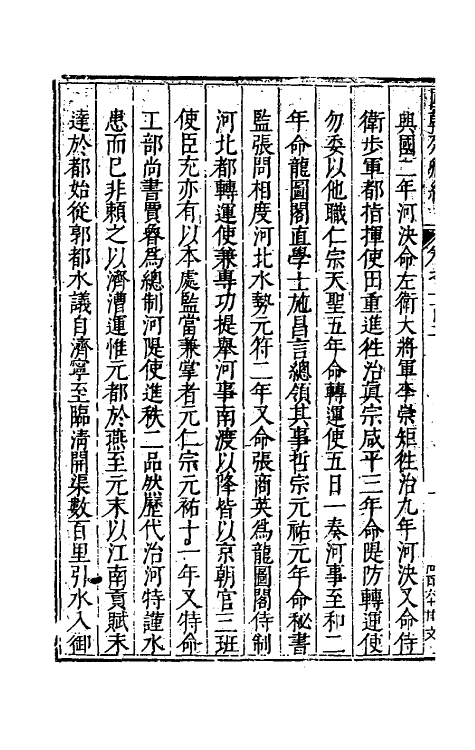 興國二年河決命左衛大將軍李崇矩徃治九年河決又命侍
衛歩軍都指揮使田重進徃治眞宗咸平三年命隄防轉運使
勿委以他職仁宗天聖五年命轉運使五日一奏河事至和二
年命龍圖閣直學士施昌言總領其事哲宗元祐元年命秘書
監張問相度河北水勢元符二年又命張商英爲龍圖閣待制
河北都轉運使兼專功提舉河事南渡以降皆以京朝官三班
使臣充亦有以本處監當兼掌者元仁宗元祐十一年又特命
工部尚書賈魯爲總制河隄使進秩二品然歷代治河特護水
患而已非賴之以濟漕運惟元都於燕至元末以江南貢賦未
達於都始從郭都水議自濟寧至臨清開渠數百里引水入御